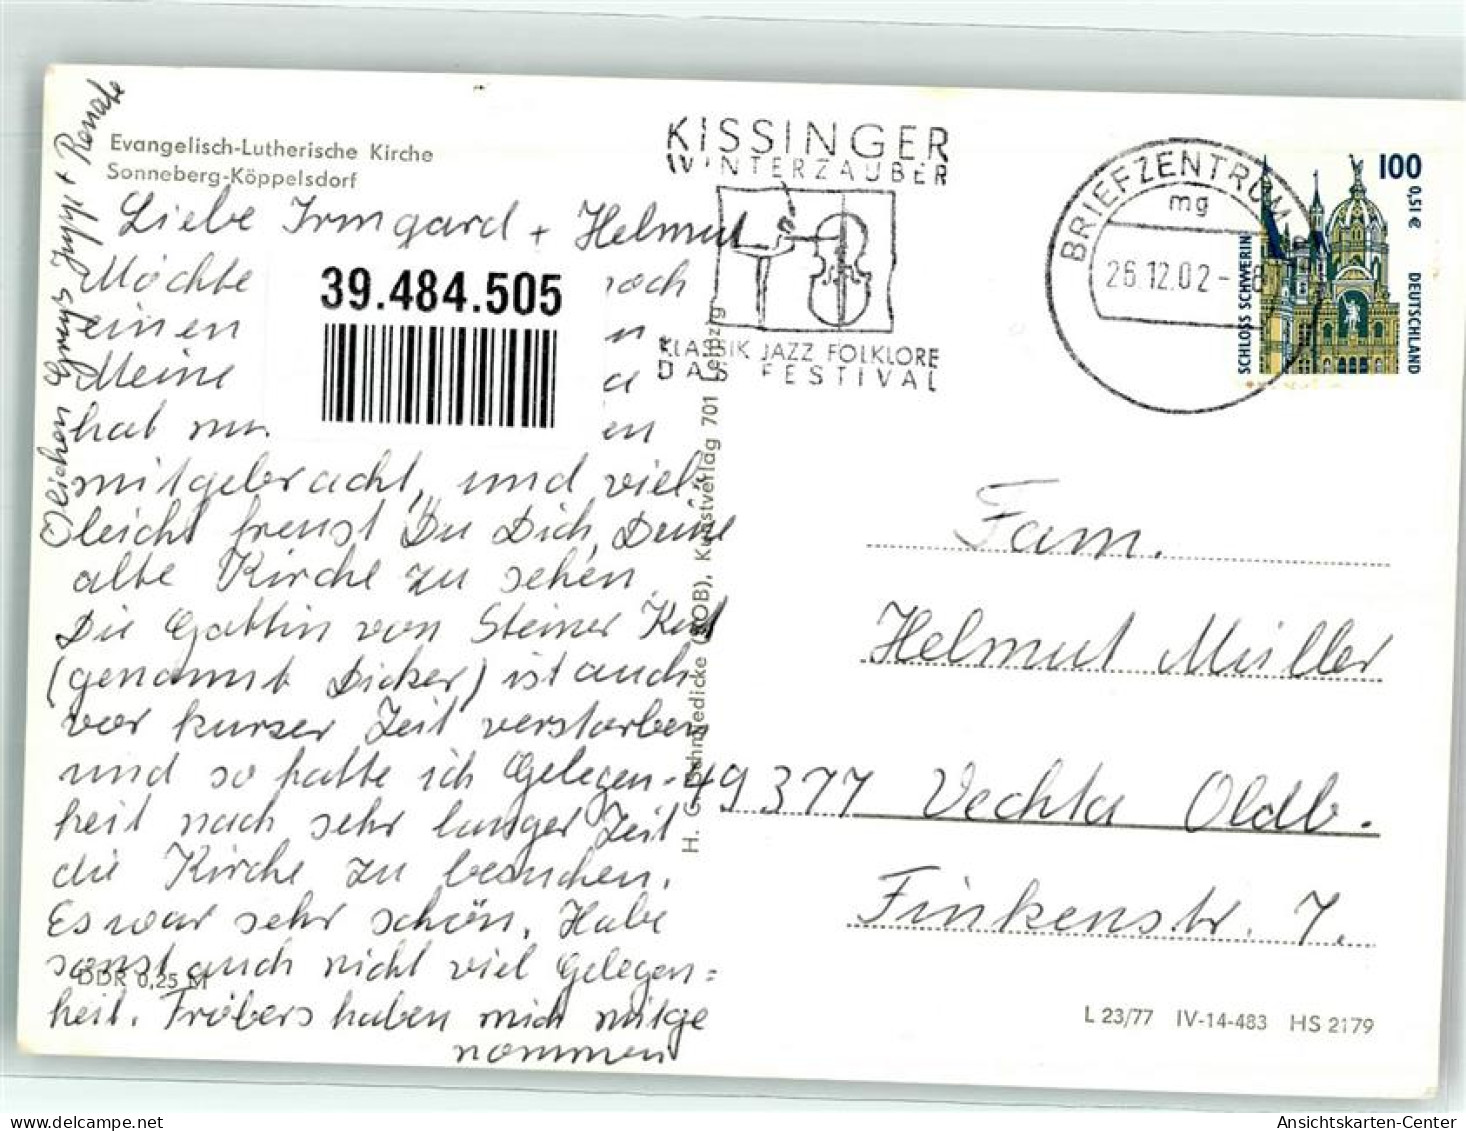 Evangelisch-Lutherische Kirche
Sonneberg-Köppelsdorf
Liebe Irmgard + Helmut
Möchte noch
einen
Meine
hat
mitgebracht, und viel-
leicht freust Du Dich, Deine
alte Kirche zu sehen.
Die Gattin von Steiner Kurt
(genannt Dicker) ist auch
vor kurzer Zeit verstorben
und so hatte ich Gelegen-
heit nach sehr langer Zeit
die Kirche zu besuchen.
Es war sehr schön. Habe
sonst auch nicht viel Gelegen=
heit. Fröbers haben mich mitge
nommen
DDR 0,25 M
39.484.505
H. C. Schmiedicke (KOB), Kunstverlag 701 Leipzig
KISSINGER
WINTERZAUBER
KLASSIK JAZZ FOLKLORE
DAS FESTIVAL
BRIEFZENTRUM
mg
26.12.02-18
100
0,51 €
SCHLOSS SCHWERIN
DEUTSCHLAND
Fam.
Helmut Müller
49377 Vechta Oldb.
Finkenstr. 7.
L 23/77 IV-14-483 HS 2179
Ansichtskarten-Center